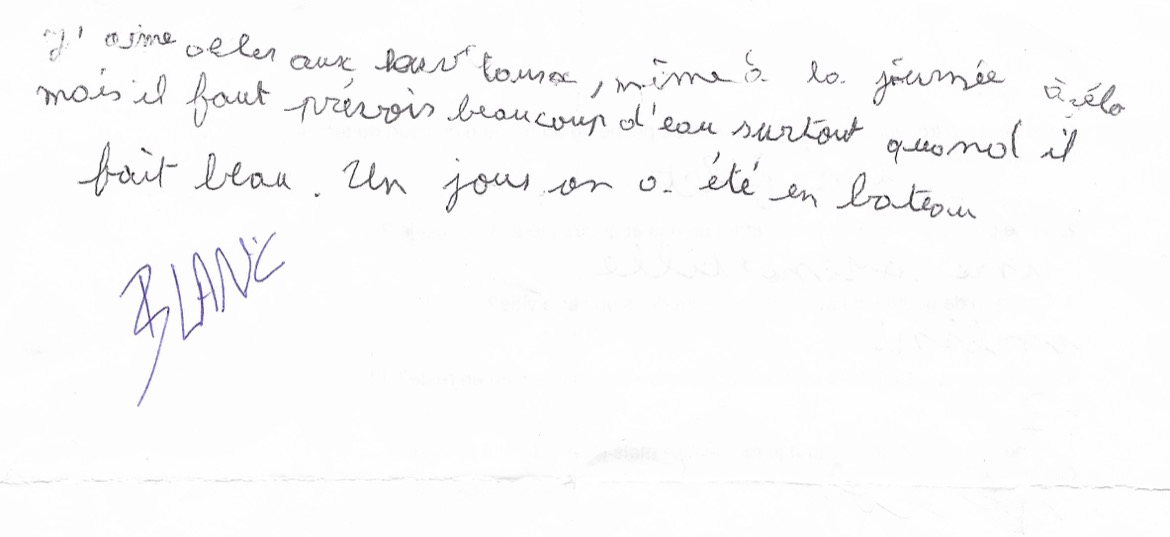 J'aime aller aux tousa, même à la journée à vélo
mais il faut prévoir beaucoup d'eau surtout quand il
fait beau. Un jour on a été en bateau
BLANC